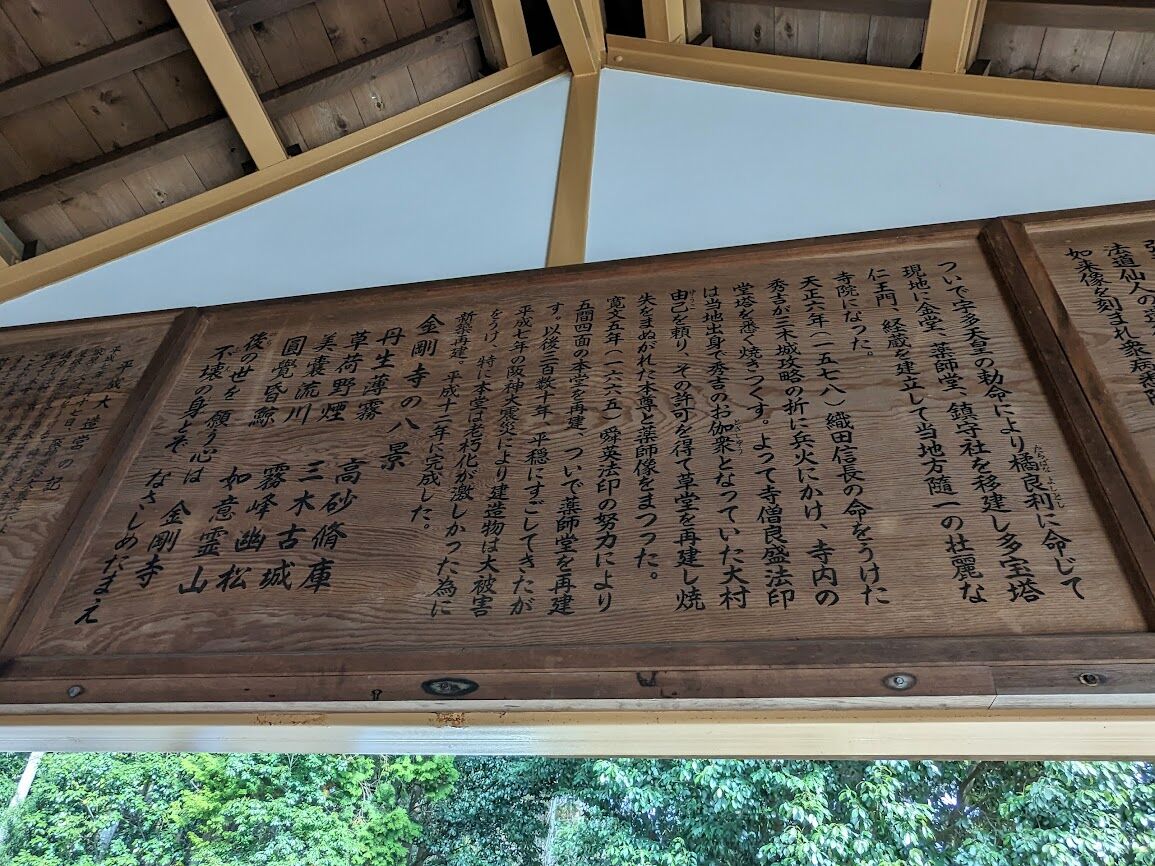 法道仙人の
如来像を刻まれ衆病悉除
ついで宇多天皇の勅命により橘良利に命じて
現地に金堂、薬師堂、鎮守社を移建し多宝塔
仁王門、経蔵を建立して当地方随一の壮麗な
寺院になった。
天正六年(一五七八)織田信長の命をうけた
秀吉が三木城攻略の折に兵火にかけ、寺内の
堂塔を悉く焼きつくす。よって寺僧良盛法印
は当地出身で秀吉のお伽衆となっていた大村
由己を頼り、その許可を得て草堂を再建し焼
失をまぬがれた本尊と薬師像をまつった。
寛文五年(一六六五)舜英法印の努力により
五間四面の本堂を再建、ついで薬師堂を再建
す。以後三百数十年、平穏にすごしてきたが
平成七年の阪神大震災により建造物は大被害
をうけ、特に本堂は老朽化が激しかった為に
新築再建、平成十一年に完成した。
金剛寺の八景
丹生薄霧 高砂脩庫
草荷野煙 三木古城
美嚢流川 霧峰幽松
圓覺昏鯨 如意霊山
後の世を願う心は 金剛寺
不壊の身とぞ なさしめたまえ
平成大造営の記